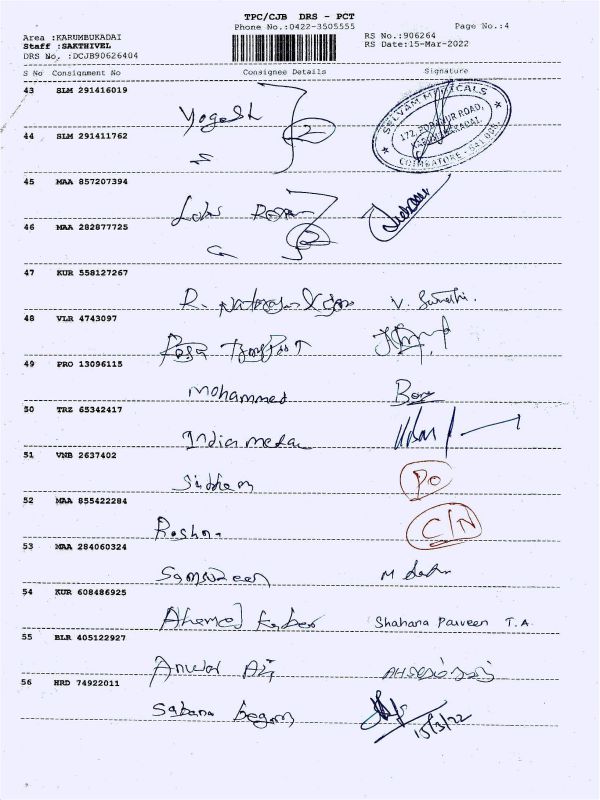 TPC/CJB DRS - PCT
Phone No.:0422-3505555 Page No.:4
Area :KARUMBUKADAI
Staff :SAKTHIVEL RS No.:906264
DRS No. :DCJB90626404 RS Date:15-Mar-2022
S No Consignment No Consignee Details Signature
43 SLM 291416019
Yogesh 2
SELVAM MEDICALS
172, PODANUR ROAD,
KARUMBUKADAI,
COIMBATORE - 641 008.
44 SLM 291411762
45 MAA 857207394
2
46 MAA 282877725
47 KUR 558127267
R. V. Sumathi.
48 VLR 4743097
49 PRO 13096115
Mohammed
50 TRZ 65342417
India
51 VNB 2637402
PO
52 MAA 855422284
Roshna C/N
53 MAA 284060324
M
54 KUR 608486925
Ahamed Kaber Shahana Parveen T.A.
55 BLR 405122927
Anwar Ali
56 HRD 74922011
Sabana begam 15/3/22